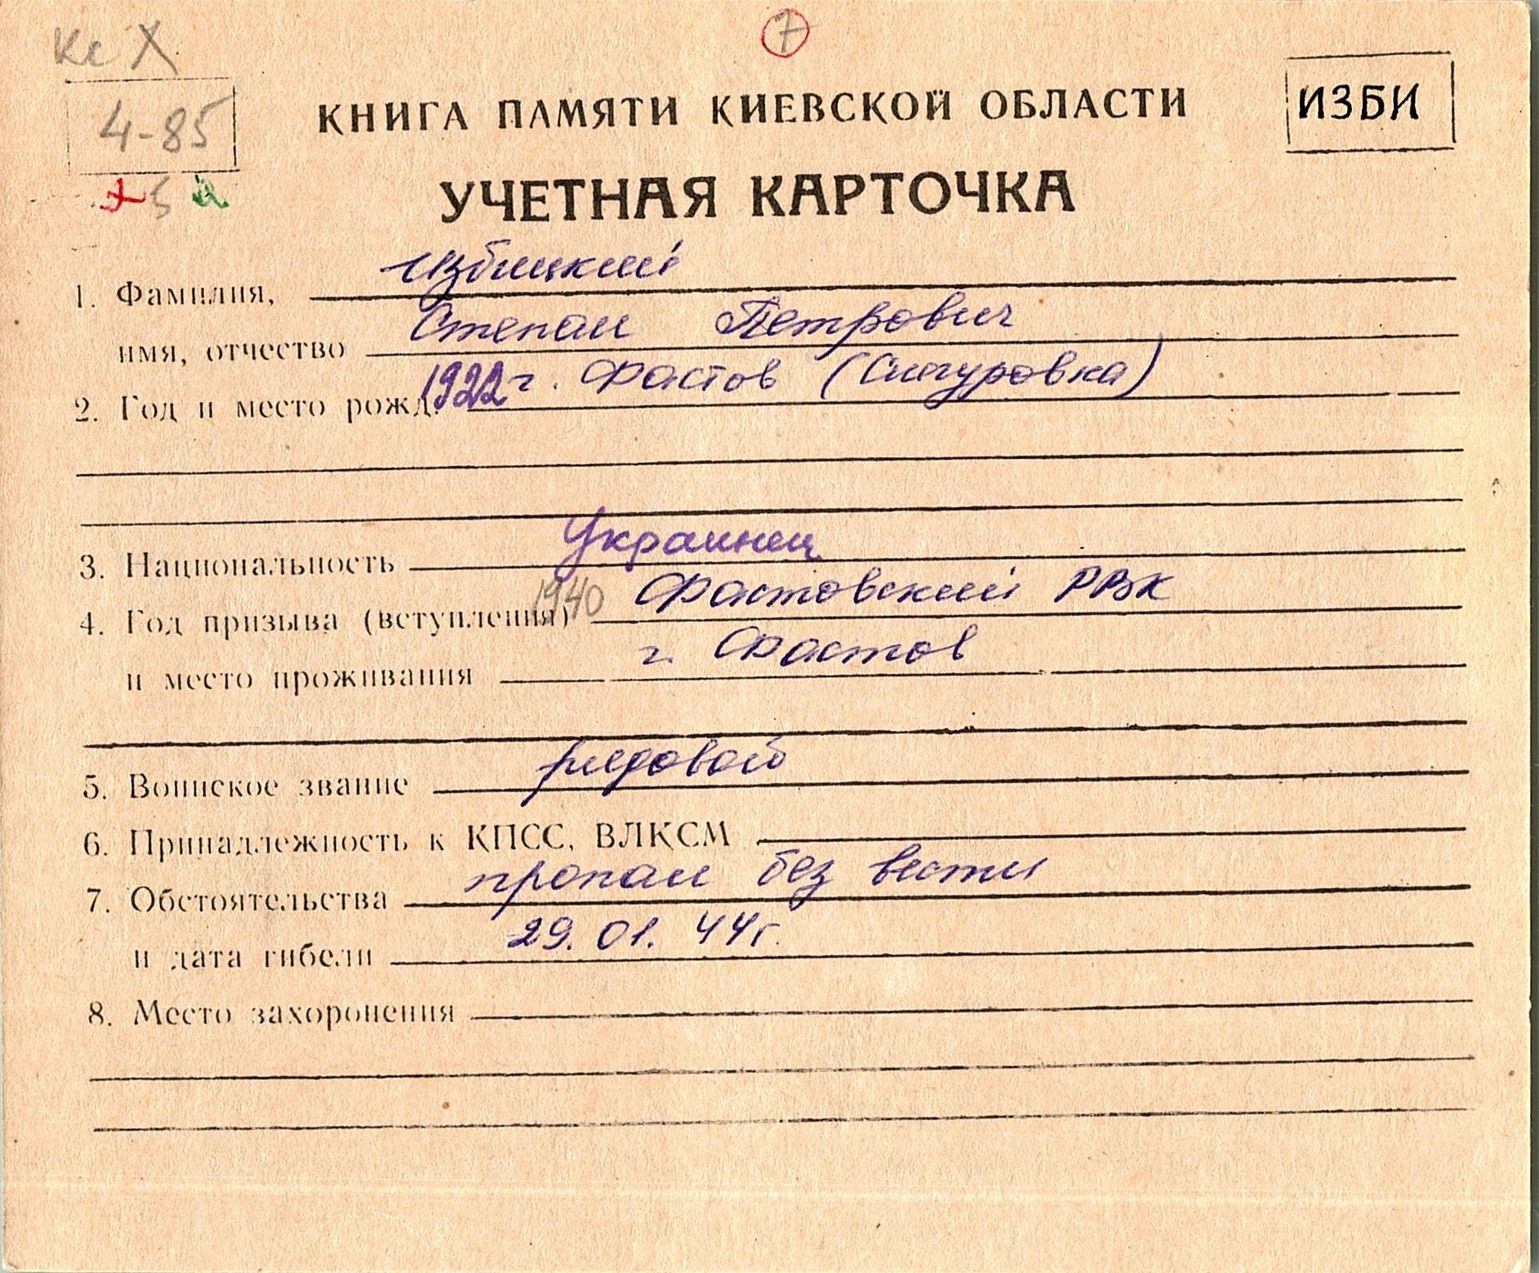 7
4-85
КНИГА ПАМЯТИ КИЕВСКОЙ ОБЛАСТИ
ИЗБИ
УЧЕТНАЯ КАРТОЧКА
1. Фамилия, Избицкий
имя, отчество Степан Петрович
2. Год и место рожд. 1922 г. Фастов (Снегуровка)
3. Национальность Украинец
4. Год призыва (вступления) 1940 Фастовский РВК
и место проживания г. Фастов
5. Воинское звание рядовой
6. Принадлежность к КПСС, ВЛКСМ
7. Обстоятельства пропал без вести
и дата гибели 29.01.44г.
8. Место захоронения